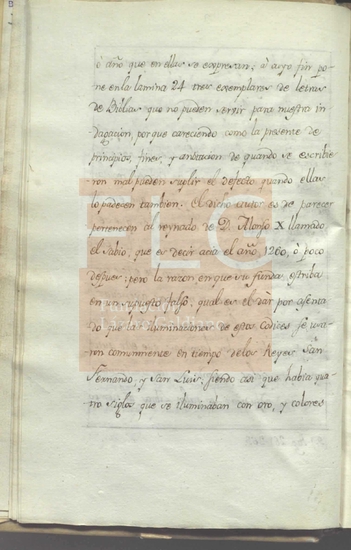 ò año que en ellas se expresan: à cuyo fin po-
ne en la lamina 24 tres exemplares de letras
de Biblias que no pueden servir para nuestra in-
dagacion, porque careciendo como la presente de
principios, fines, y anotacion de quando se escribie-
ron mal pueden suplir el defecto quando ellas
lo padecen tambien. El dicho autor es de parecer
pertenecen al reynado de D. Alonso X llamado
el Sabio, que es decir acia el año 1260, ò poco
despues; pero la razon en que se funda, estriba
en un supuesto falso, qual es el dar por asenta-
do que la iluminacion de estos codices se usa-
ron comunmente en tiempo de los Reyes San
Fernando, y San Luis, siendo asi que habia qua-
tro siglos que se iluminaban con oro, y colores